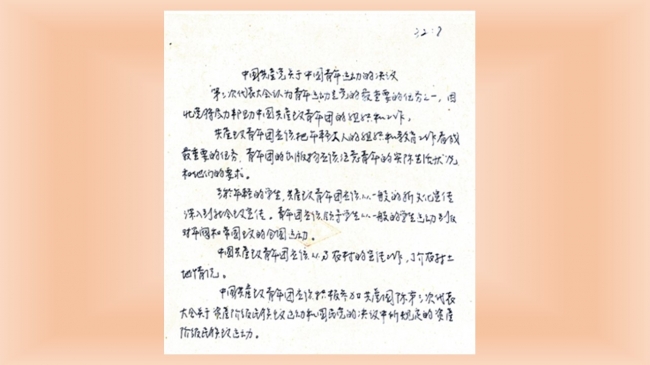 32:8
中国共產党关于中国青年运动的决议
第三次代表大会认为青年运动是党的最重要的任务之一,因
此党得尽力帮助中国共產主义青年团的组织和工作。
共產主义青年团应该把年轻工人的组织和教育工作看成
最重要的任务,青年团的出版物应该注意青年的实际生活状况
和他们的要求。
对於年轻的学生,共產主义青年团应该从一般的新文化宣传
深入到社会主义宣传。青年团应该领导学生从一般的学生运动到反
对军阀和帝国主义的全国运动。
中国共產主义青年团应该从事农村的宣传工作,了解农村土
地情况。
中国共產主义青年团应该积极参加共產国际第三次代表
大会关于资產阶级民族主义运动和国民党的决议中所规定的资產
阶级民族主义运动。